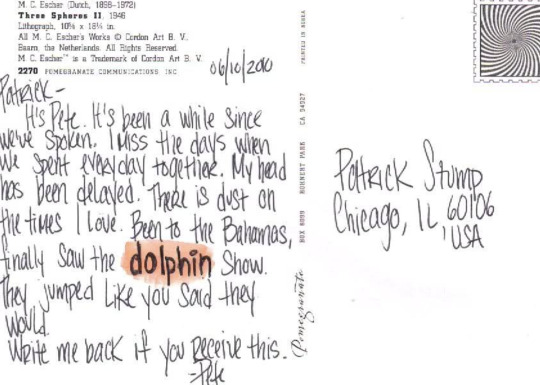 M. C. Escher (Dutch, 1898–1972)
Three Spheres II, 1946
Lithograph, 10⅝ x 18¼ in.
All M. C. Escher's Works © Cordon Art B. V.,
Baarn, the Netherlands. All Rights Reserved.
M. C. Escher™ is a Trademark of Cordon Art B. V.
2270 POMEGRANATE COMMUNICATIONS INC
06/10/2010
Patrick –
It's Pete. It's been a while since
we've spoken. I miss the days when
we spent everyday together. My head
has been delayed. There is dust on
the times I love. Been to the Bahamas,
finally saw the dolphin show.
They jumped like you said they
would.
Write me back if you receive this.
-Pete
Pomegranate
BOX 6099 ROHNERT PARK CA 94927
PRINTED IN KOREA
Patrick Stump
Chicago, IL 60106
, USA